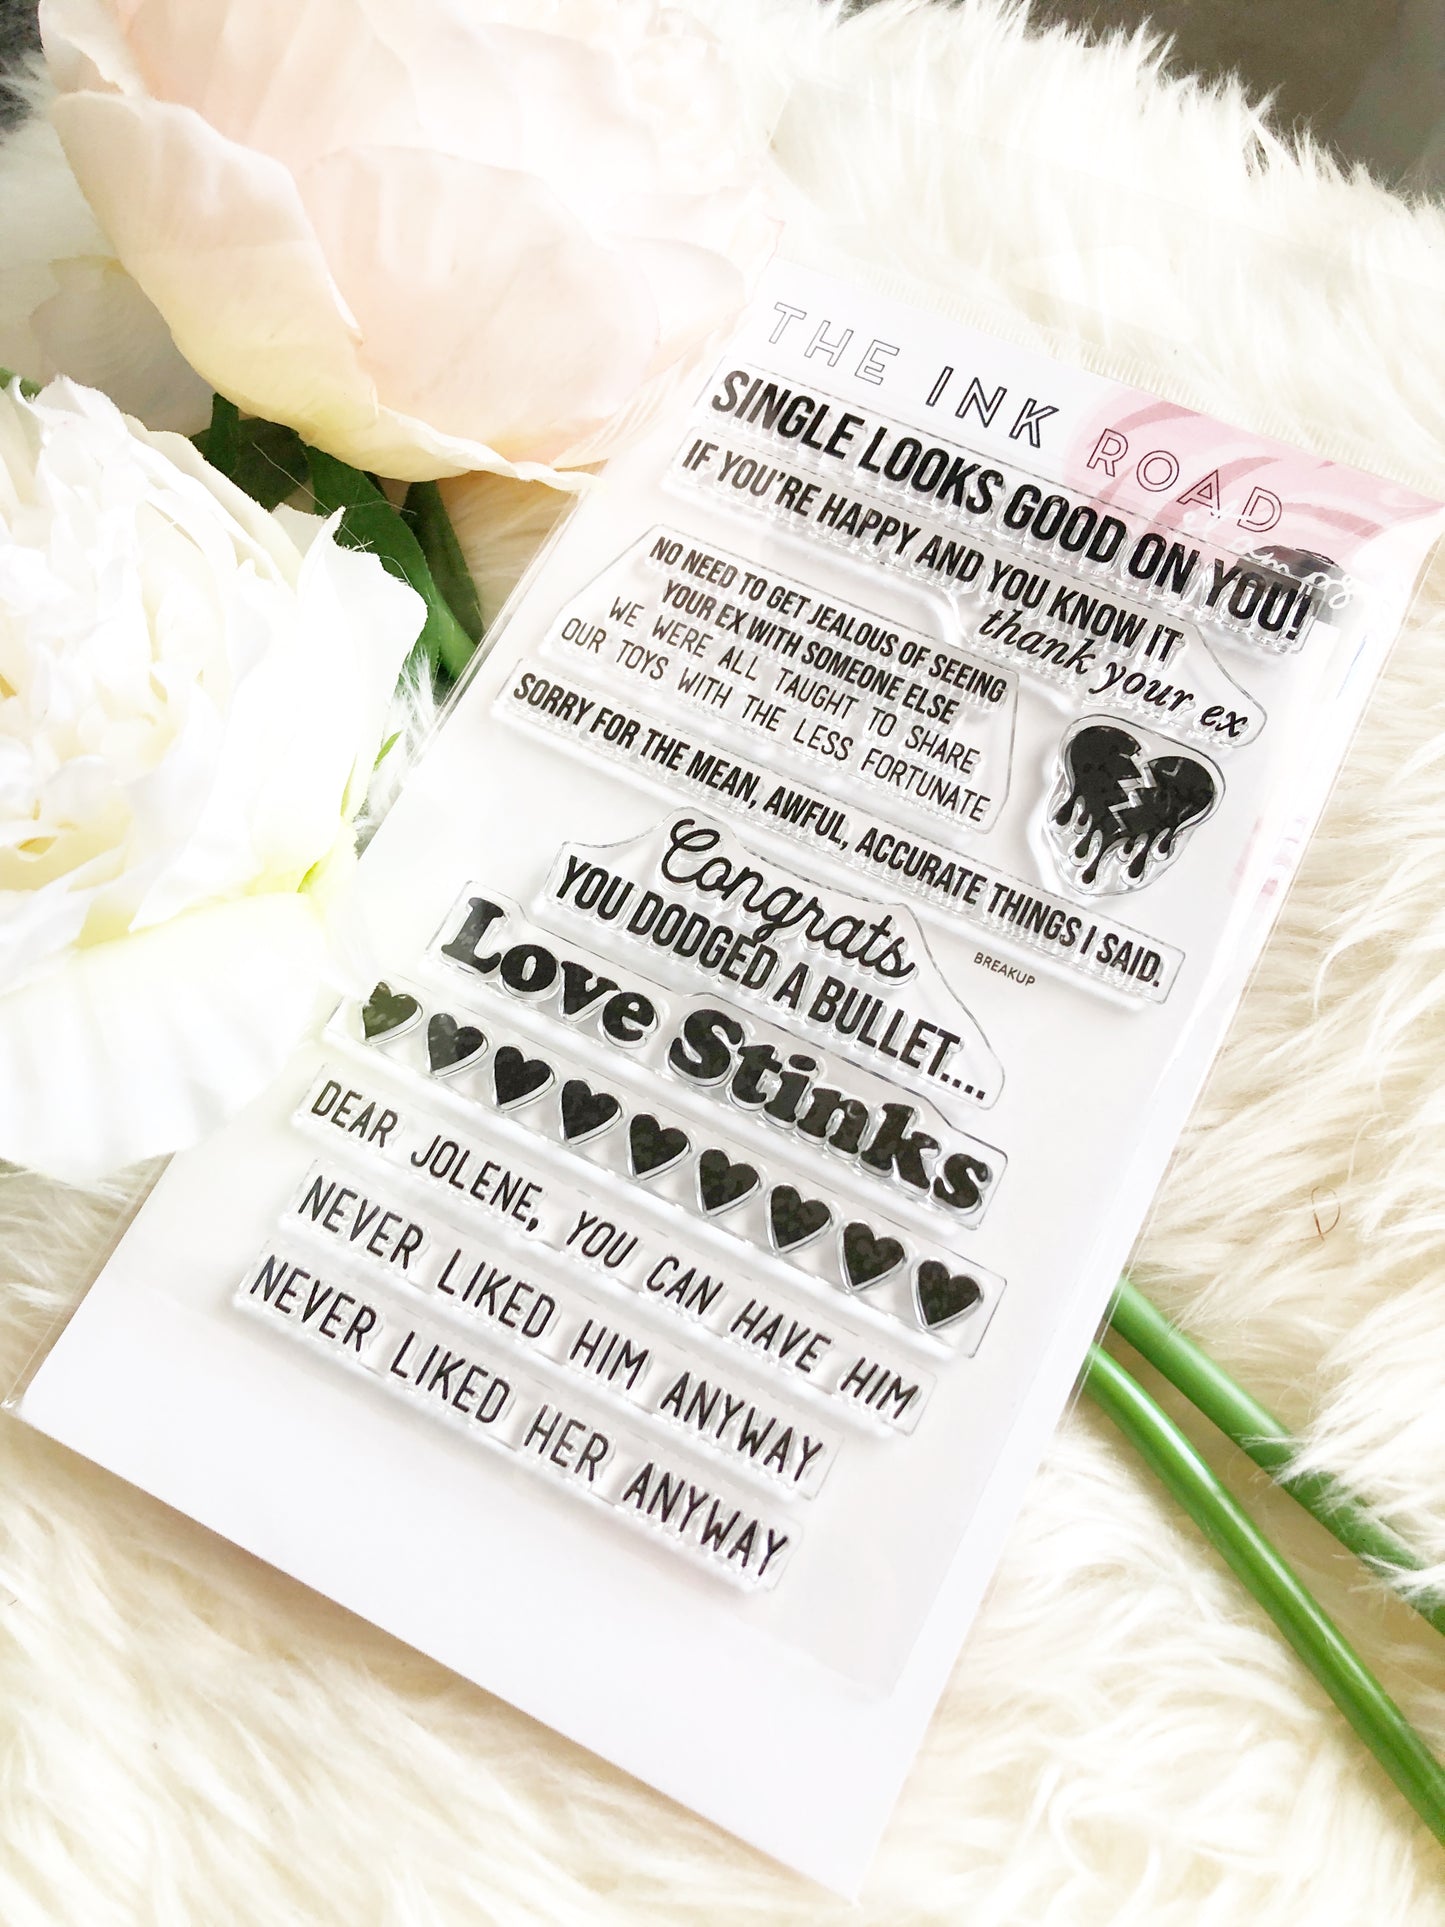 THE INK ROAD
SINGLE LOOKS GOOD ON YOU!
IF YOU'RE HAPPY AND YOU KNOW IT
thank your ex
NO NEED TO GET JEALOUS OF SEEING
YOUR EX WITH SOMEONE ELSE
WE WERE ALL TAUGHT TO SHARE
OUR TOYS WITH THE LESS FORTUNATE
SORRY FOR THE MEAN, AWFUL, ACCURATE THINGS I SAID.
Congrats
YOU DODGED A BULLET....
BREAKUP
Love Stinks
DEAR JOLENE, YOU CAN HAVE HIM
NEVER LIKED HIM ANYWAY
NEVER LIKED HER ANYWAY